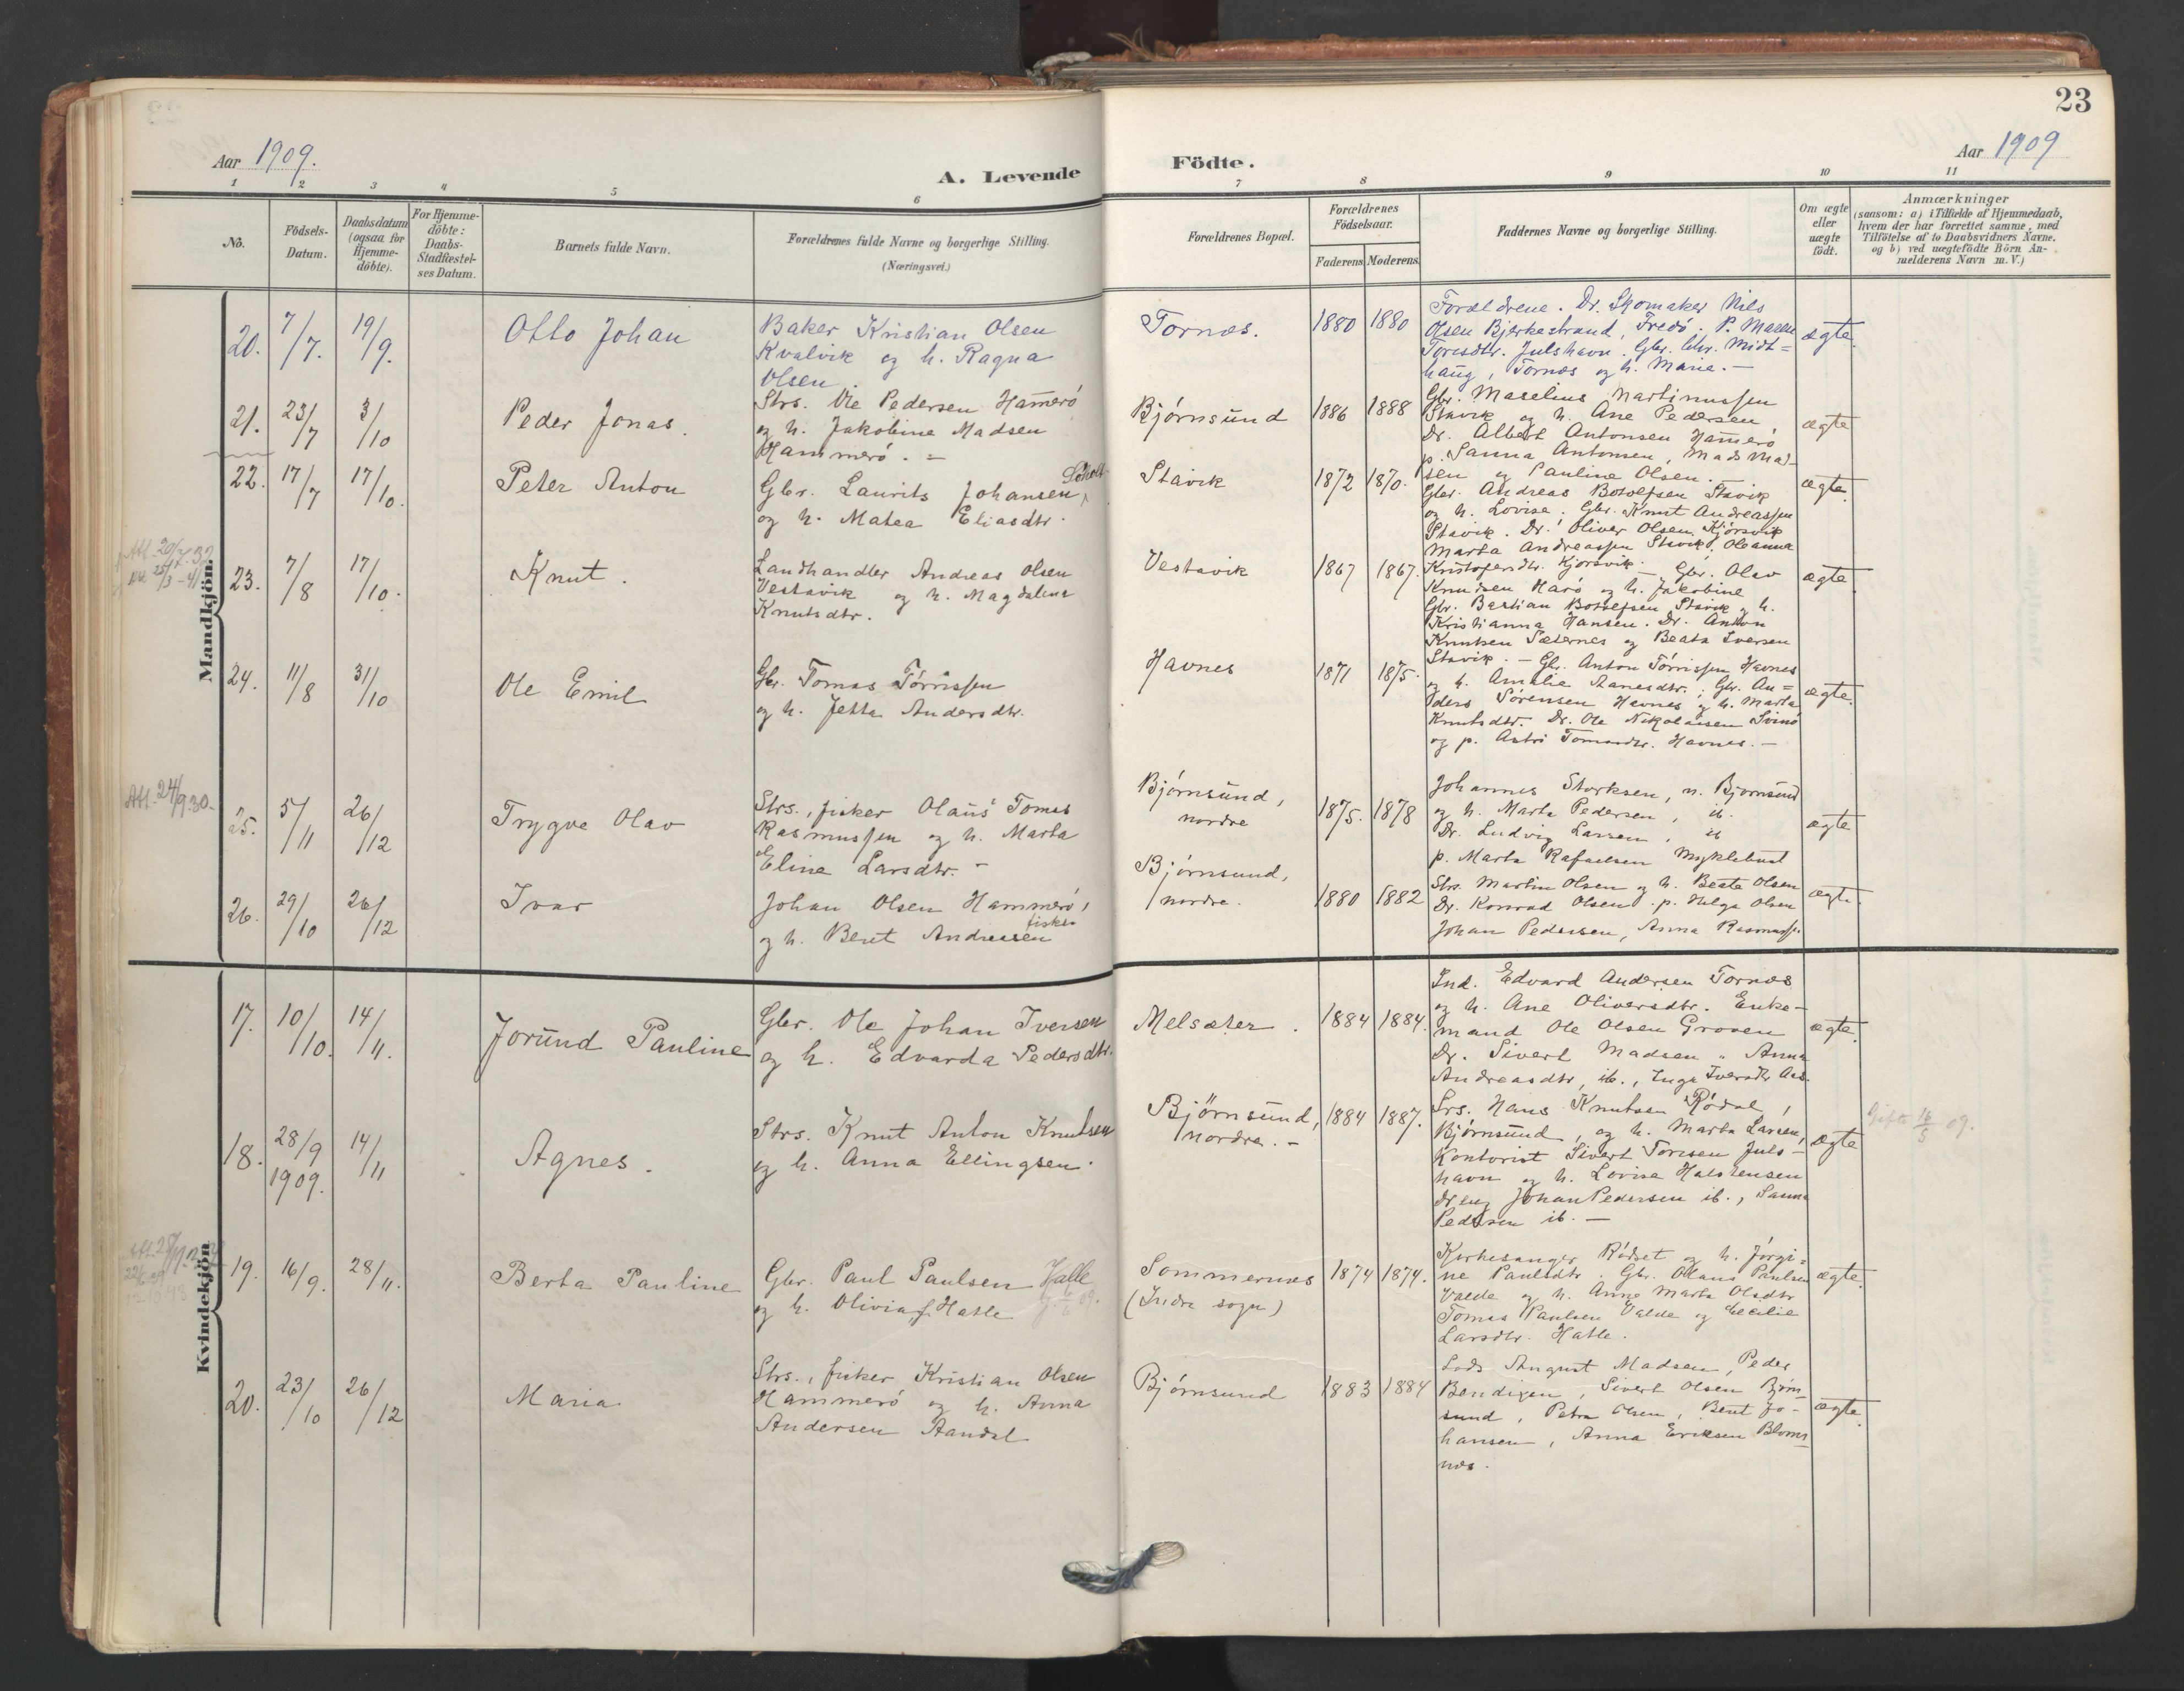 23
Aar 1909.
A. Levende
Födte.
Aar 1909
1 2 3 4 5 6 7 8 9 10 11
No.
Födsels-
Datum.
Daabsdatum
(ogsaa for
Hjemme-
döbte).
For Hjemme-
döbte:
Daabs-
Stadfæstel-
ses Datum.
Barnets fulde Navn.
Forældrenes fulde Navne og borgerlige Stilling.
(Næringsvei.)
Forældrenes Bopæl.
Forældrenes
Födselsaar.
Faderens. Moderens.
Faddernes Navne og borgerlige Stilling.
Om ægte
eller
uægte
födt.
Anmærkninger
(saasom: a) i Tilfælde af Hjemmedaab,
hvem der har forrettet samme, med
Tilföielse af to Daabsvidners Navne,
og b) ved uægtefödte Börn An-
melderens Navn m. V.)
Mandkjön.
20. 7/7. 19/9. Otto Johan
Baker Kristian Olsen
Kvalvik og h. Ragna
Olsen.
Tornæs. 1880 1880
Forældrene. Dr. Skomaker Nils
Olsen Bjerkestrand, Fredö. P. Maren
Toresdtr. Julshavn. Gbr. Chr. Midt=
haug, Tornæs og h. Marie. —
ægte.
21. 23/7 3/10 Peder Jonas.
Strs. Ole Pedersen Hammerö
og h. Jakobine Madsen
Hammerö. =
Björnsund 1886 1888
Gbr. Maselius Martinussen
Stavik og h. Ane Pedersen,
Dr. Albert Antonsen Hammerö
p. Sanna Antonsen, Mads Mad-
sen og Pauline Olsen. —
ægte
22. 17/7 17/10. Peter Anton
Gbr. Laurits Johansen
og h. Matea Eliasdtr.
Stavik 1872 1870.
Gbr. Andreas Botolfsen Stavik
og h. Lovise. Gbr. Knut Andreassen
Stavik. Dr. Oliver Olsen Kjörsvik
Marta Andreassen Stavik, Oleanna
Kristofersdtr. Kjörsvik. —
ægte.
23. 7/8 17/10. Knut.
Landhandler Andreas Olsen
Vestavik og h. Magdalene
Knutsdtr.
Vestavik 1867 1867.
Gbr. Olav
Knudsen Harö og h. Jakobine
Gbr. Bastian Botolfsen Stavik og h.
Kristianna Hansen. Dr. Anton
Knutsen Sæternes og Beata Iversen
Stavik. —
ægte.
24. 11/8 31/10 Ole Emil
Gbr. Tomas Törrissen
og h. Jetta Andersdtr.
Havnes 1871 1875.
Gbr. Anton Törrissen Havnes
og h. Amalie Aanesdtr.; Gbr. An=
ders Sörensen Havnes og h. Marta
Knutsdtr. Dr. Ole Nikolaisen Svinö
og p. Astri Tomasdtr. Havnes. —
ægte.
Att. 24/9 30.
25. 5/11 26/12 Trygve Olav
Strs., fisker Olaus Tomas
Rasmussen og h. Marta
Eline Larsdtr. —
Björnsund,
nordre 1875. 1878
Johannes Storksen, n. Björnsund
og h. Marta Pedersen, ib.
Dr. Ludvig Larsen, ib
p. Marta Rafaelsen Myklebust
ægte
26. 29/10 26/12 Ivar
Johan Olsen Hammerö,
fisker
og h. Berit Andreesen
Björnsund,
nordre. 1880 1882
Strs. Martin Olsen og h. Beate Olsen
Dr. Konrad Olsen. p. Helga Olsen
Johan Pedersen, Anna Rasmuss.
ægte.
Kvindekjön
17. 10/10. 14/11. Jorund Pauline
Gbr. Ole Johan Iversen
og h. Edvarda Pedersdtr.
Melsæter. 1884 1884.
Ind. Edvard Andersen Tornæs
og h. Ane Oliversdtr. Enke-
mand Ole Olsen Groven
Dr. Sivert Madsen " Anna
Andreasdtr, ib., Inga Iversdtr
ægte.
18. 28/9 1909. 14/11 Agnes.
Strs. Knut Anton Knutsen
og h. Anna Ellingsen.
Björnsund,
nordre. — 1884 1887.
Srs. Hans Knutsen Rödal,
Björnsund, og h. Marta Larsen,
Kontorist Sivert Toresen Juls-
havn og h. Lovise Halstensen
dreng Johan Pedersen ib., Sanna
Pedersen ib. —
ægte
Gift 16/5 09.
19. 16/9. 28/11. Berta Pauline
Gbr. Paul Paulsen Halle
og h. Olivia f. Hatle
Sommernes
(Indre sogn) 1874 1874.
Kirkesanger Rödset og h. Jörgi=
ne Paulsdtr. Gbr. Olaus Paulsen
Valde og h. Anne Marta Olsdtr
Tomas Paulsen Valde og Cecilie
Larsdtr. Hatle.
ægte.
20. 23/10 26/12 Maria
Strs., fisker Kristian Olsen
Hammerö og h. Anna
Andersen Aandal
Björnsund 1883 1884
Lods August Madsen, Peder
Bendixen, Sivert Olsen Björn-
sund, Petra Olsen, Berit Jo-
hansen, Anna Eriksen Bloms
næs.
ægte.